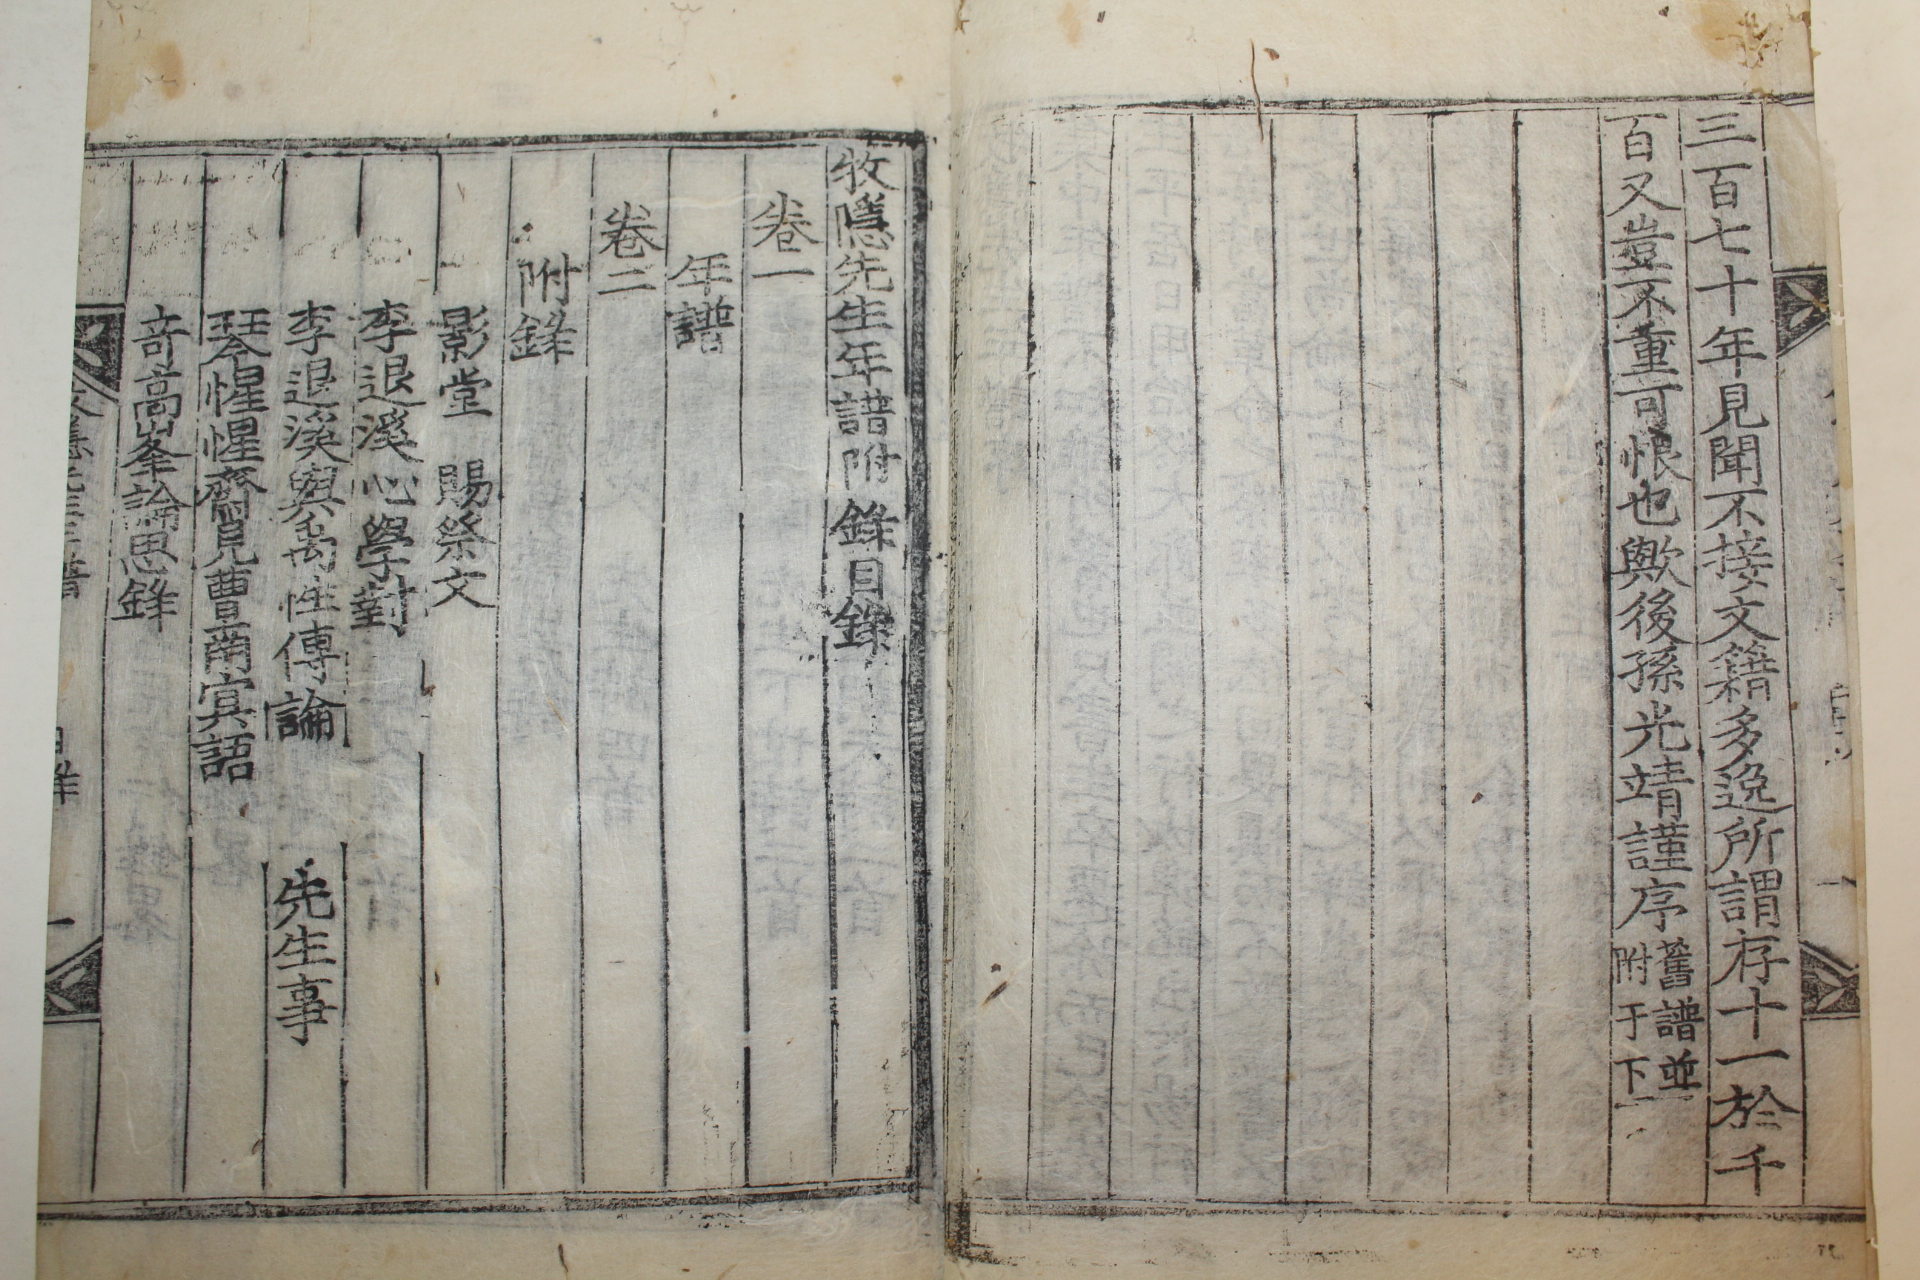 三百七十年見聞不接文籍多逸所謂存十一於千
百又豈不重可恨也歟後孫光靖謹序舊譜並附于下
牧隱先生年譜附錄目錄
卷一
年譜
卷二
附錄
影堂 賜祭文
李退溪心學對
李退溪與禹性傳論 先生事
琴惺惺齋見曹南冥語
奇高峯論思錄
目錄 一